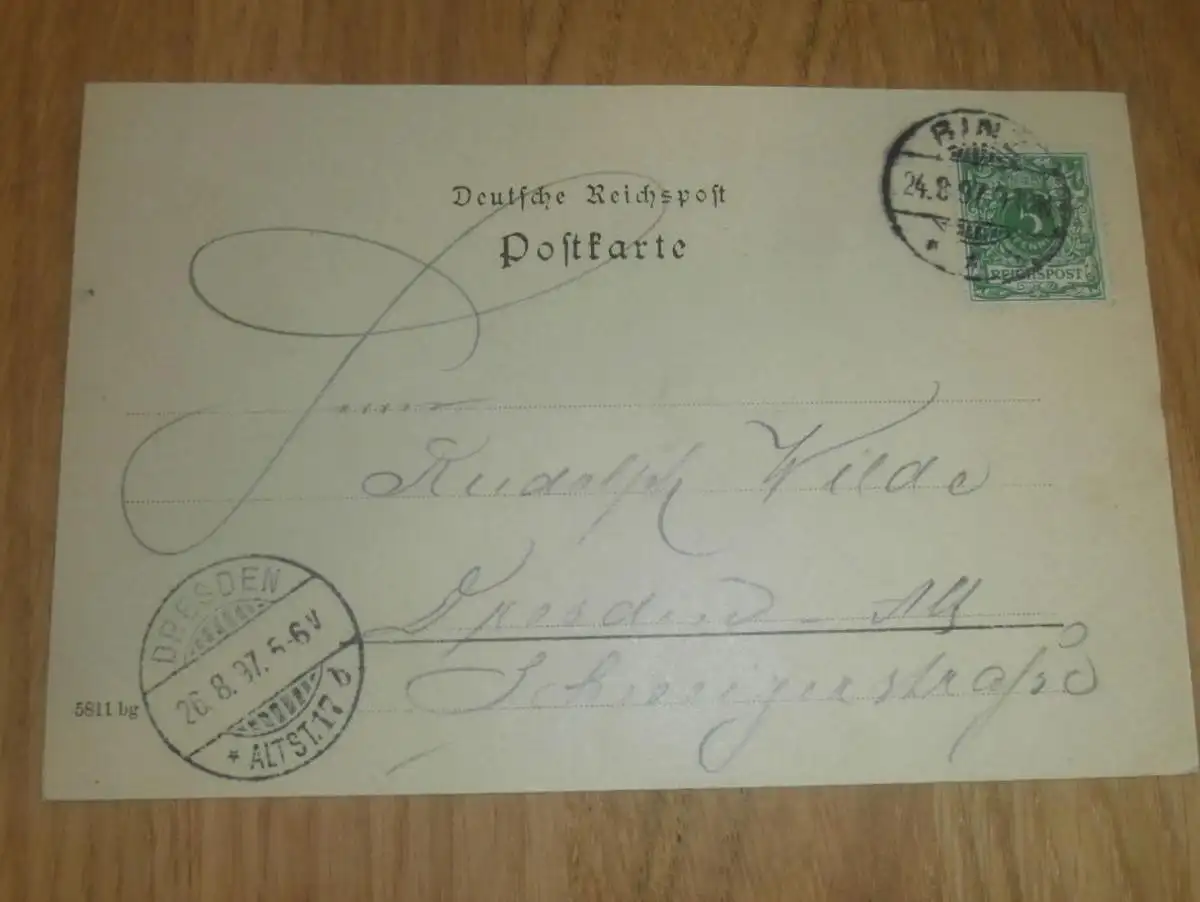 Deutsche Reichspost
Postkarte
BIN
24.8.97.
5
REICHSPOST
Rudolph Wilde
Dresden - Alt
DRESDEN
26.8.97. 5-6V
* ALTST.17 b
5811 bg